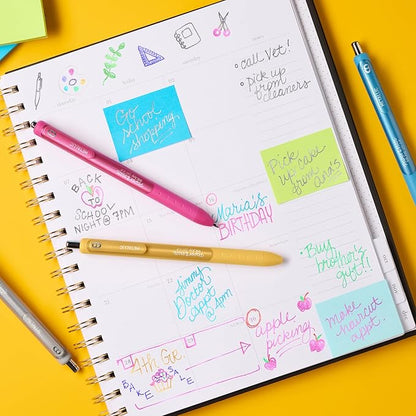 • Call Vet!
• Pick up
from
cleaners
Go
school
shopping
Pick up cake
from
ana's
BACK
to
SCHOOL
NIGHT @ 7PM
Maria's
BIRTHDAY
Jimmy
Doctor
appt
@ 4pm
• Buy
brother's
gift!!
make
haircut
appt.
apple
picking
4th Gr.
BAKE
SALE